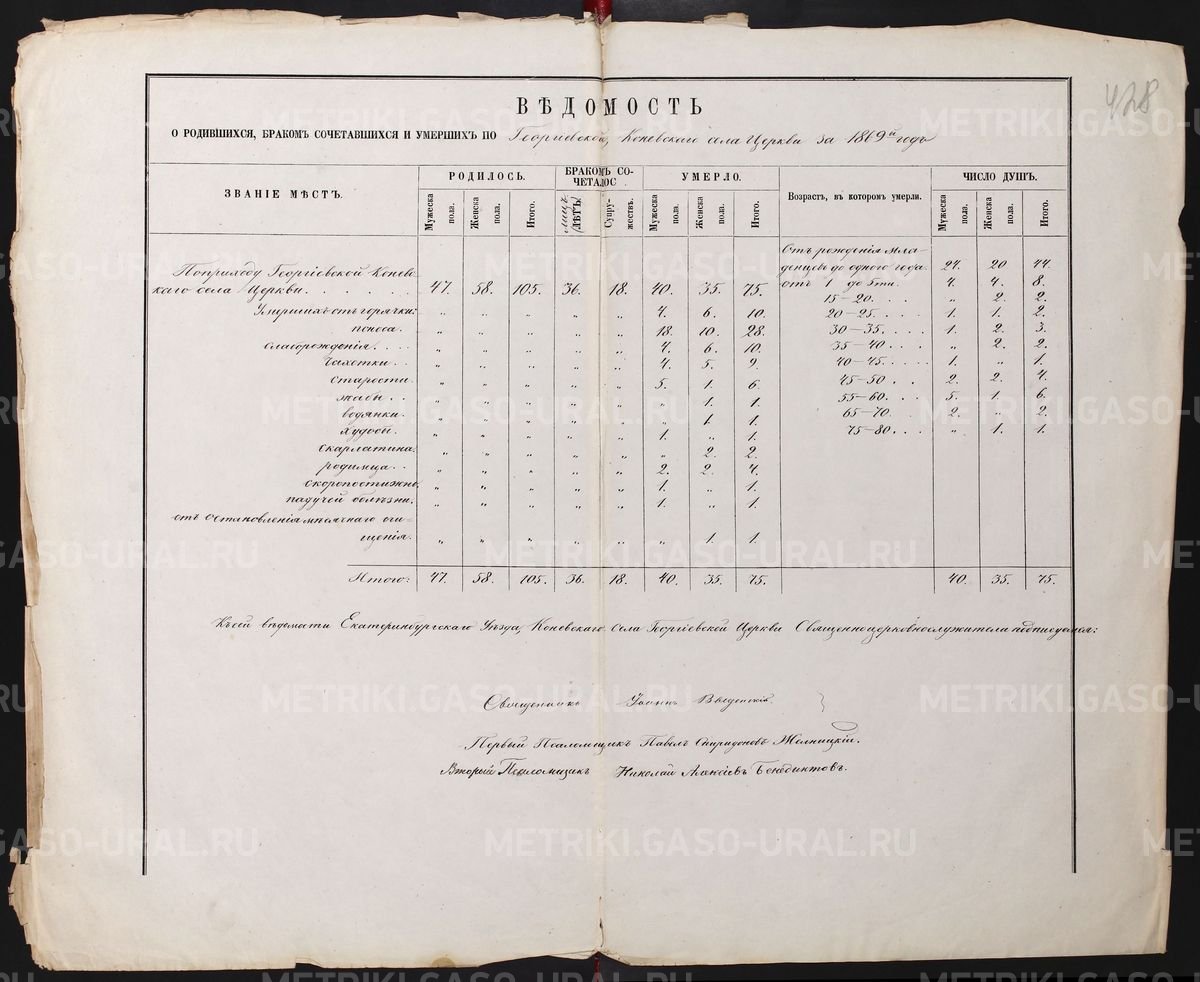 428
ВѢДОМОСТЬ
О РОДИВШИХСЯ, БРАКОМЪ СОЧЕТАВШИХСЯ И УМЕРШИХЪ ПО Георгіевской, Коневскаго села Церкви за 1869й годъ
ЗВАНІЕ МѢСТЪ. РОДИЛОСЬ. БРАКОМЪ СОЧЕТАЛОС УМЕРЛО. Возрастъ, въ которомъ умерли. ЧИСЛО ДУШЪ.
Мужеска пола. Женска пола. Итого. лицъ ЛѢТЪ. Супружествъ. Мужеска пола. Женска пола. Итого. Мужеска пола. Женска пола. Итого.
Отъ рожденія мла-
По приходу Георгіевской Конев- денцевъ до одного года. 24. 20 44.
каго села Церкви. 47. 58. 105. 36. 18. 40. 35. 75. отъ 1 до 5ти. 4. 4. 8.
15-20. " 2. 2.
Умершихъ отъ горячки: " " " " " 4. 6. 10. 20-25. 1. 1. 2.
поноса. " " " " " 18. 10. 28. 30-35. 1. 2. 3.
слаборожденія. " " " " " 4. 6. 10. 35-40. " 2. 2.
чахотки. " " " " " 4. 5. 9. 40-45. 1. " 1.
старости. " " " " " 5. 1. 6. 45-50. 2. 2. 4.
жабы. " " " " " " 1. 1. 55-60. 5. 1. 6.
водянки. " " " " " " 1. 1. 65-70. 2. " 2.
худобы. " " " " " 1. " 1. 75-80. " 1. 1.
скарлатина. " " " " " " 2. 2.
родимца. " " " " " 2. 2. 4.
скоропостижно. " " " " " 1. " 1.
падучей болѣзни. " " " " " 1. " 1.
отъ остановленія мѣсячнаго очи-
щенія. " " " " " " 1. 1.
Итого: 47. 58. 105. 36. 18. 40. 35. 75. 40. 35. 75.
Къ сей вѣдомости Екатеринбургскаго Уѣзда, Коневскаго Села Георгіевской Церкви Священноцерковнослужители подписуемся:
Священникъ Іоаннъ Введенскій.
Первый Псаломщикъ Павелъ Спиридоновъ Желницкій.
Второй Псаломщикъ Николай Алексѣевъ Бенедиктовъ.
METRIKI.GASO-URAL.RU